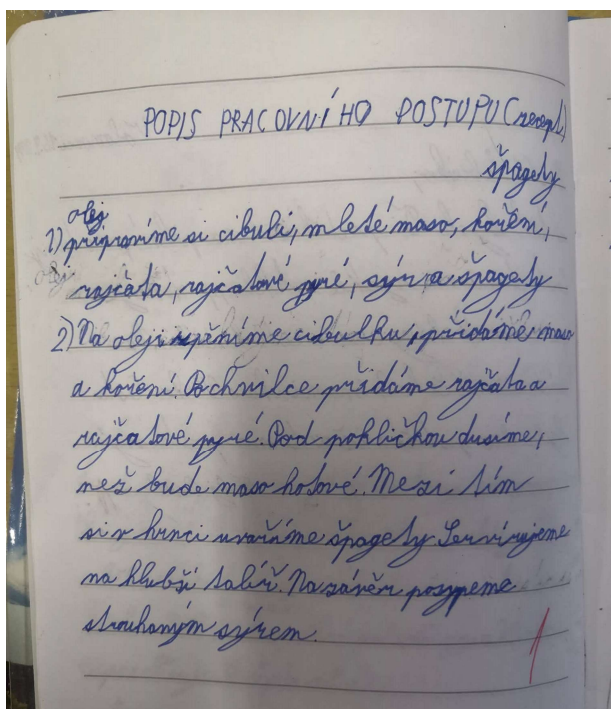 POPIS PRACOVNÍHO POSTUPU (recept)
špagety
olej
1) připravíme si cibuli, mleté maso, koření,
rajčata, rajčatové pyré, sýr a špagety
2) Na oleji zpěníme cibulku, přidáme maso
a koření. Po chvilce přidáme rajčata a
rajčatové pyré. Pod pokličkou dusíme,
než bude maso hotové. Mezi tím
si v hrnci uvaříme špagety. Servírujeme
na hlubší talíř. Na závěr posypeme
strouhaným sýrem.
1